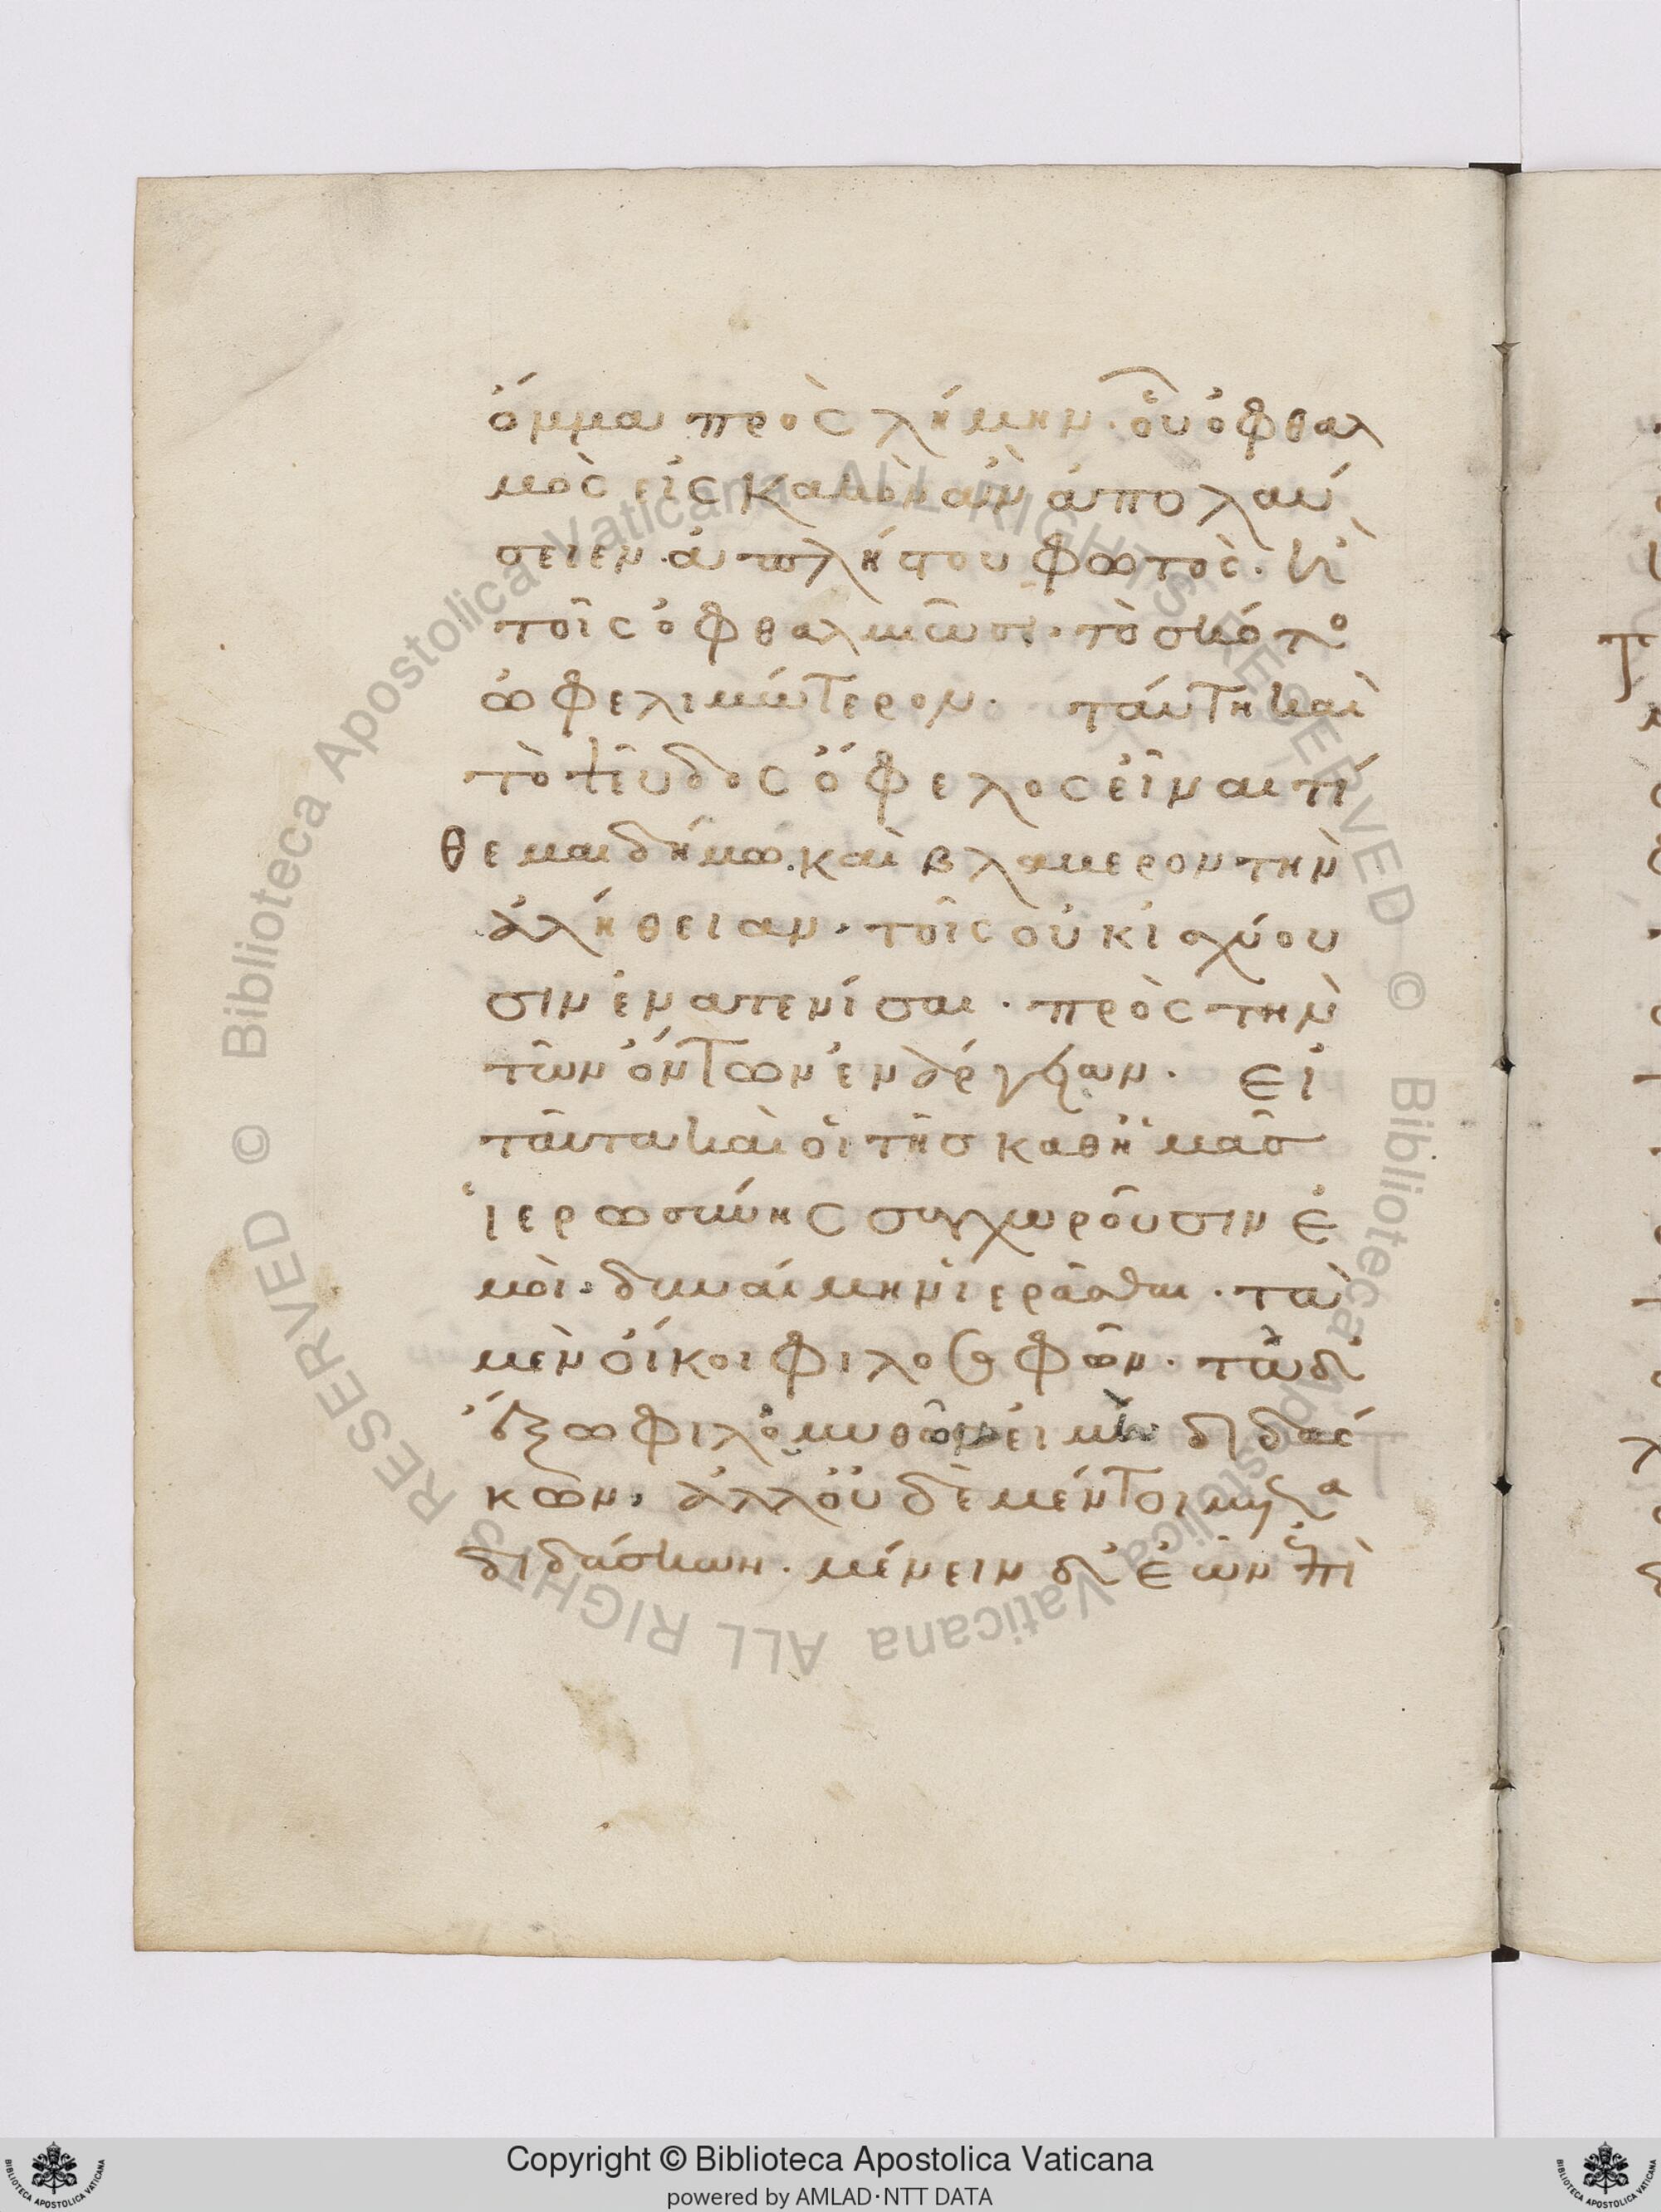 ὄμμα πρὸς λήμην· οὗ ὀφθαλ
μὸς εἰς κακὸν ἂν ἀπολαύ
σειεν· ἀπλήστου φωτὸς· ἧ
τοῖς ὀφθαλμιῶσι· τὸ σκότο
ὠφελιμώτερον· ταύτη καὶ
τὸ ψεῦδος ὄφελος εἶναι τί
θεμαι δήμω· καὶ βλαβερον τὴν
ἀλήθειαν· τοῖς οὐκ ἰσχύου
σιν ἐνατενίσαι· πρὸς τὴν
τῶν ὄντων ἐνάργειαν· εἰ
ταῦτα καὶ οἱ τῆσ καθ ἡμᾶσ
ἱερωσύνης συγχωροῦσιν ἐ
μοὶ· δυναίμην ἱερᾶσθαι· τὰ
μὲν οἴκοι φιλοσοφῶν· τὰ δ
ἔξω φιλόμυθός εἰμι διδάσ
κων· ἀλλ οὐδὲ μέντοι μ
διδάσκων· μένειν δ ἐῶν ἐπὶ
Copyright © Biblioteca Apostolica Vaticana
powered by AMLAD·NTT DATA